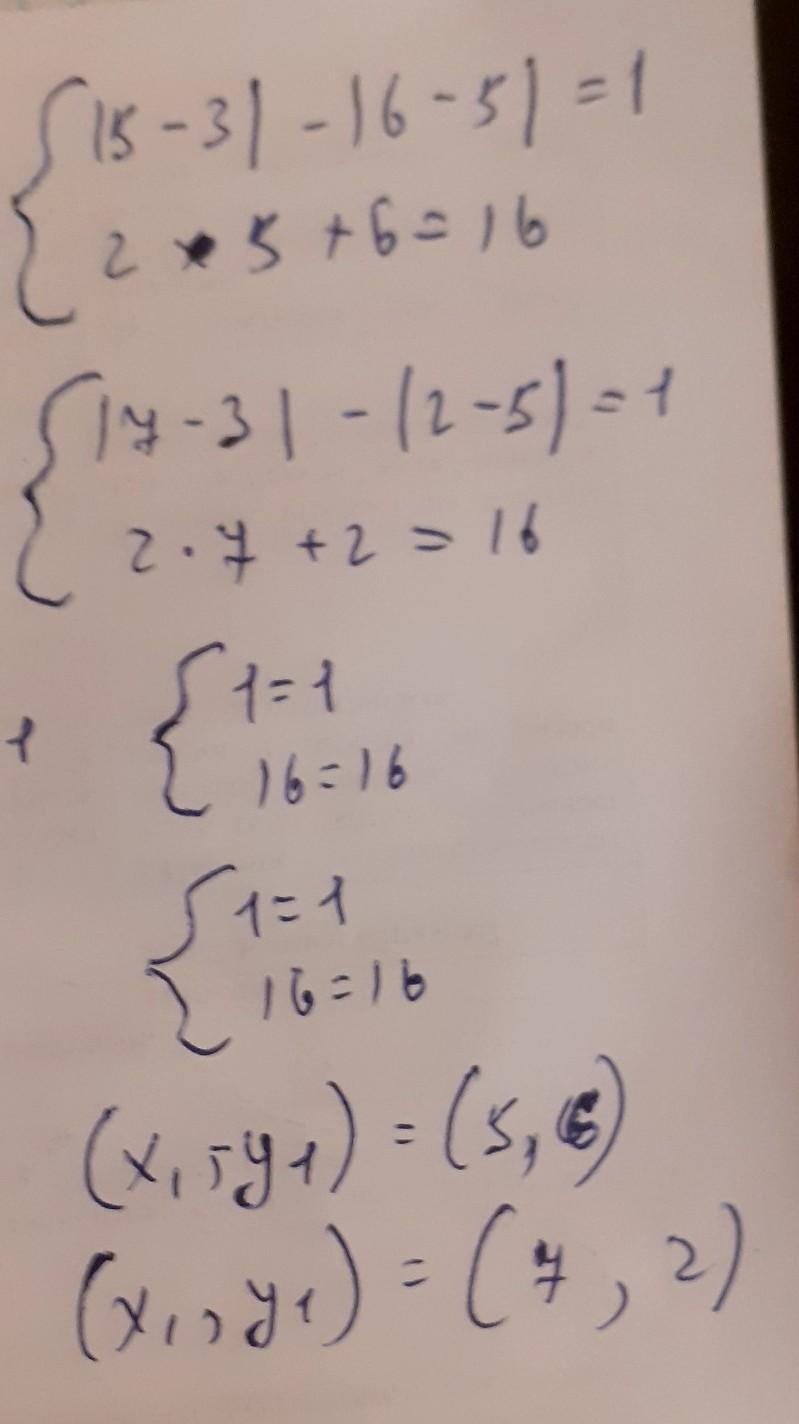 |5-3| - |6-5| = 1
2 • 5 + 6 = 16
|7-3| - |2-5| = 1
2 · 7 + 2 = 16
1=1
1
16=16
1=1
16=16
(x₁, y₁) = (5, 6)
(x₁, y₁) = (7, 2)